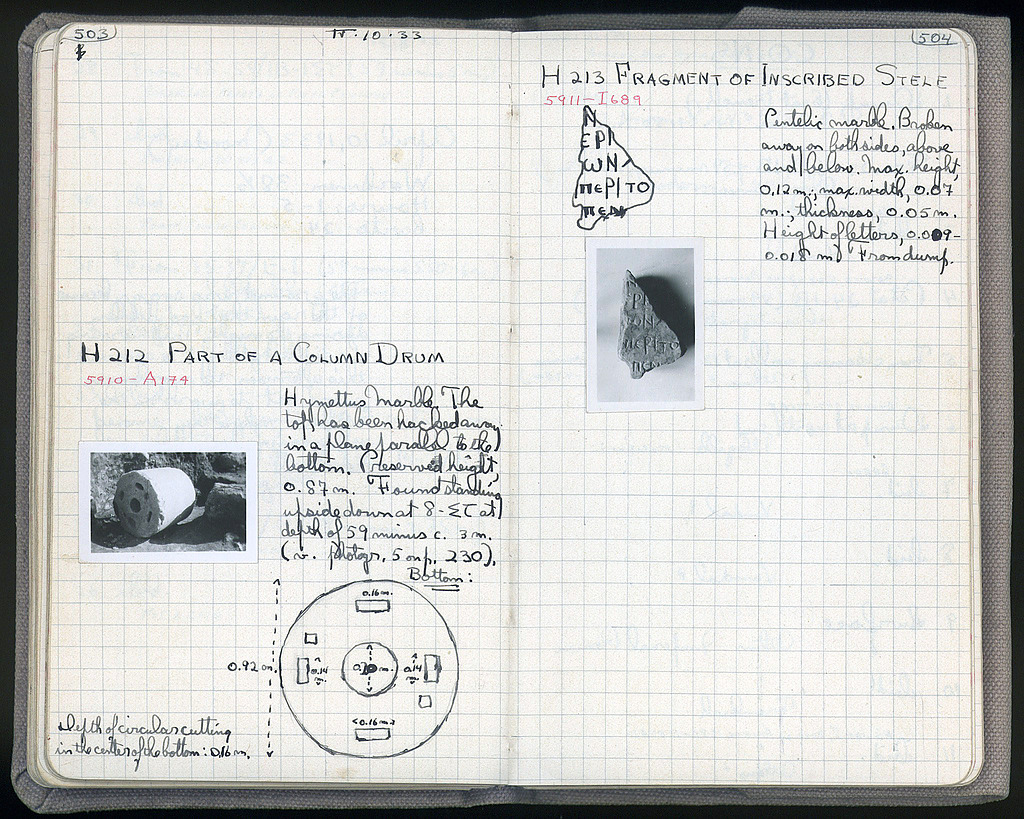 503
IV·10·33
H 212 PART OF A COLUMN DRUM
5910 - A174
Hymettus Marble. The
top has been hacked away
in a plane parallel to the
bottom. Preserved height,
0.87 m. Found standing
upside down at 8-ΣΤ at
depth of 59 minus c. 3 m.
(v. photogr. 5 on p. 230).
Bottom:
0.16 m.
0.92 m.
0.14 m.
0.20 m.
0.14 m.
0.16 m.
Depth of circular cutting
in the center of the bottom: 0.16 m.
504
H 213 FRAGMENT OF INSCRIBED STELE
5911 - I689
Ν
ΕΡΙ
ωΝ
ΠΕΡΙΤΟ
Pentelic marble. Broken
away on both sides, above
and below. Max. height,
0.12 m.; max. width, 0.07
m.; thickness, 0.05 m.
Height of letters, 0.009-
0.018 m. From dump.